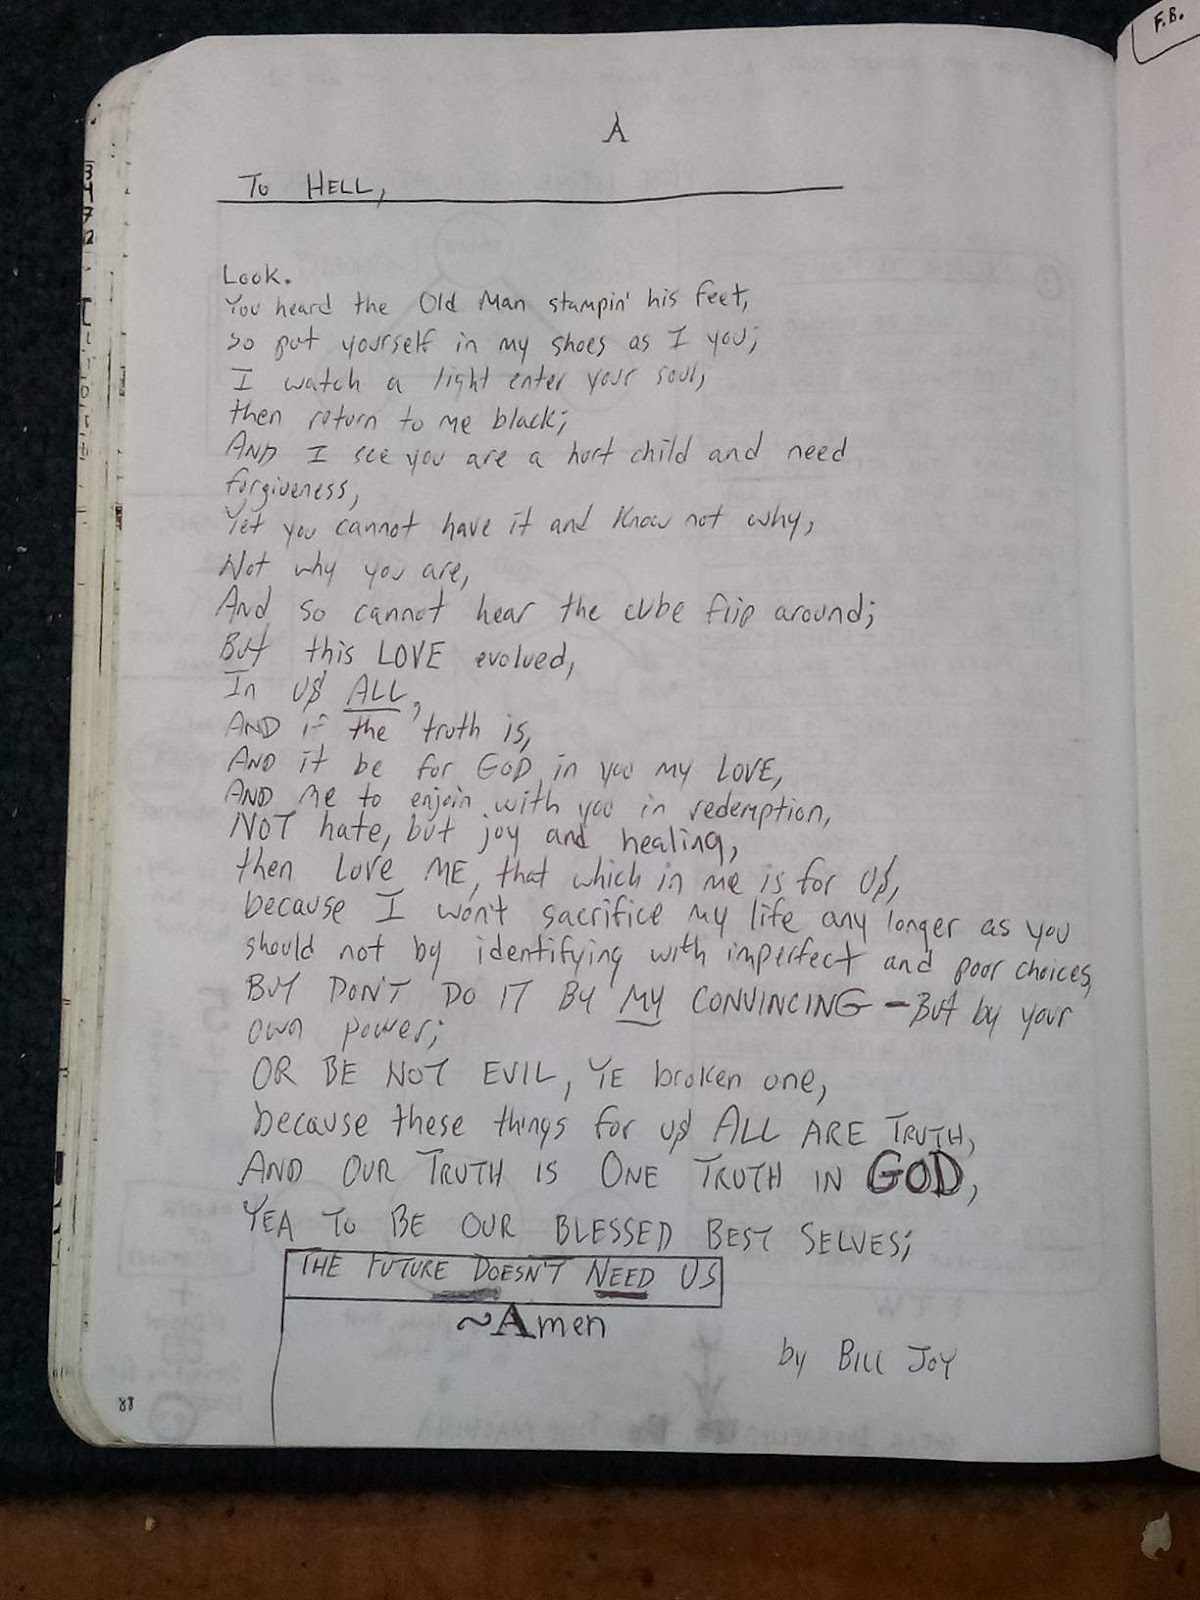 F.B.
A
To HELL,
Look.
You heard the Old Man stampin' his feet,
so put yourself in my shoes as I you;
I watch a light enter your soul,
then return to me black;
AND I see you are a hurt child and need
forgiveness,
Yet you cannot have it and know not why,
Not why you are,
And so cannot hear the cube flip around;
But this LOVE evolved,
In U$ ALL,
AND if the truth is,
AND it be for GOD in you my LOVE,
AND me to enjoin with you in redemption,
NOT hate, but joy and healing,
then love ME, that which in me is for U$,
because I won't sacrifice my life any longer as you
should not by identifying with imperfect and poor choices,
BUT DON'T DO IT BY MY CONVINCING - But by your
own power;
OR BE NOT EVIL, YE broken one,
because these things for u$ ALL ARE TRUTH,
AND OUR TRUTH IS ONE TRUTH IN GOD,
YEA TO BE OUR BLESSED BEST SELVES;
THE FUTURE DOESN'T NEED US
~Amen
by BILL JOY
88